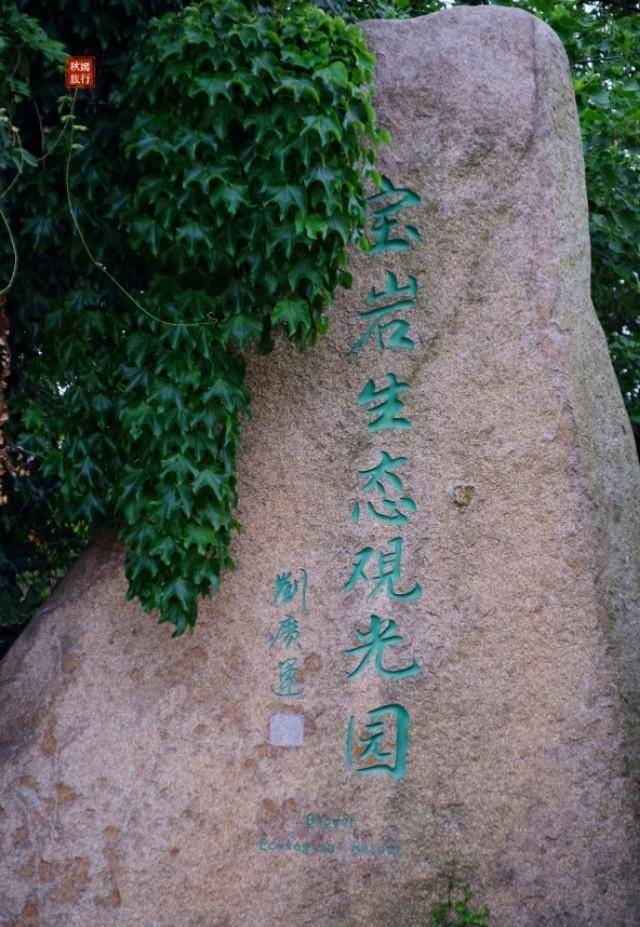 秋嫣
旅行
宝岩生态观光园
劉廣運
Baoyan
Ecological Resort